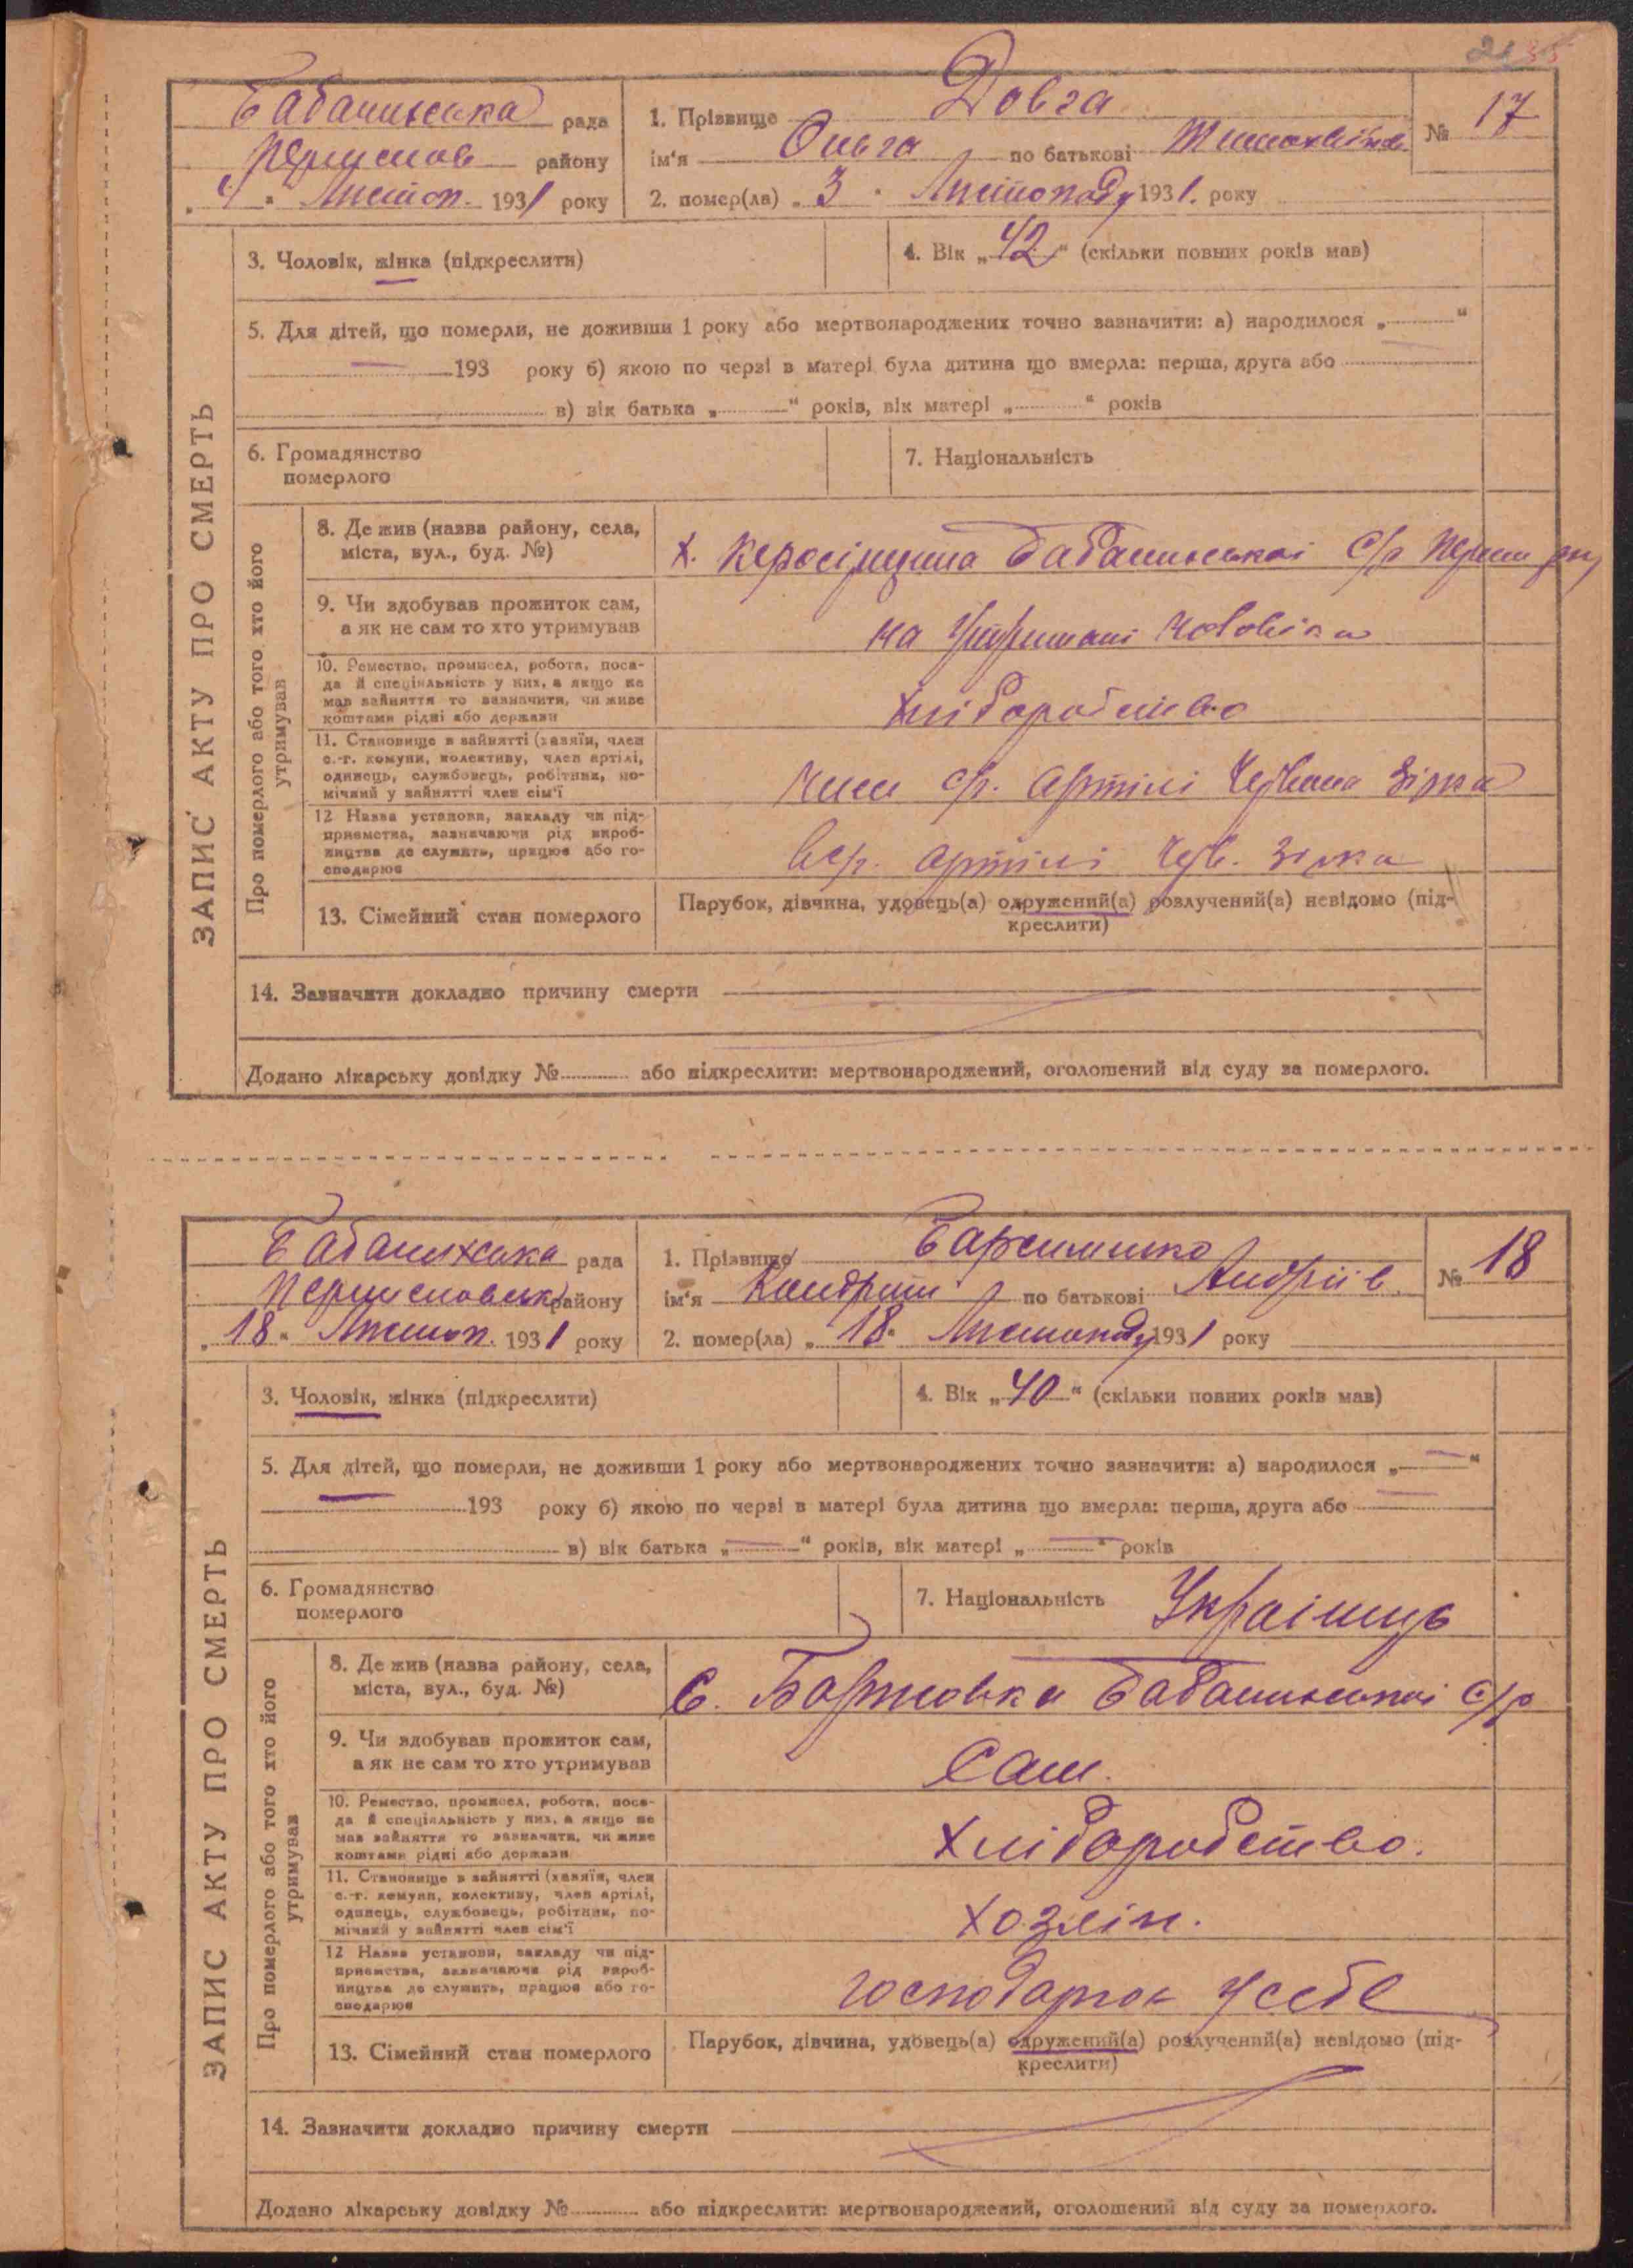 35
Бабанинська рада
району
„4" Листоп. 1931 року
1. Прізвище Довга
ім'я Ольга по батькові
№ 17
2. помер(ла) „3" Листопаду 1931. року
ЗАПИС АКТУ ПРО СМЕРТЬ
3. Чоловік, жінка (підкреслити)
4. Вік „42" (скільки повних років мав)
5. Для дітей, що померли, не доживши 1 року або мертвонароджених точно зазначити: а) народилося „ — "
— 193 року б) якою по черзі в матері була дитина що вмерла: перша, друга або
в) вік батька „ " років, вік матері „ " років
6. Громадянство
померлого
7. Національність
Про померлого або того хто його
утримував
8. Де жив (назва району, села,
міста, вул., буд. №)
х. Бабанинської с/р
9. Чи здобував прожиток сам,
а як не сам то хто утримував
на утримані чоловіка
10. Ремество, промисел, робота, поса-
да й спеціяльність у них, а якщо не
мав зайняття то зазначити, чи живе
коштами рідні або держави
Хліборобство
11. Становище в зайнятті (хазяїн, член
с.-г. комуни, колективу, член артілі,
одинець, службовець, робітник, по-
мічний у зайнятті член сім'ї
член с/г. артілі Червона Зірка
12 Назва установи, закладу чи під-
приємства, зазначаючи рід вироб-
ництва де служить, працює або го-
сподарює
в с/г. артілі Черв. Зірка
13. Сімейний стан померлого
Парубок, дівчина, удовець(а) одружений(а) розлучений(а) невідомо (під-
креслити)
14. Зазначити докладно причину смерти
Додано лікарську довідку № або підкреслити: мертвонароджений, оголошений від суду за померлого.
Бабанинська рада
району
„18" Листоп. 1931 року
1. Прізвище
ім'я Кондрат по батькові Андріїв.
№ 18
2. помер(ла) „18" Листопаду 1931 року
ЗАПИС АКТУ ПРО СМЕРТЬ
3. Чоловік, жінка (підкреслити)
4. Вік „40" (скільки повних років мав)
5. Для дітей, що померли, не доживши 1 року або мертвонароджених точно зазначити: а) народилося „ — "
— 193 року б) якою по черзі в матері була дитина що вмерла: перша, друга або —
в) вік батька „ — " років, вік матері „ — " років
6. Громадянство
померлого
7. Національність Українець
Про померлого або того хто його
утримував
8. Де жив (назва району, села,
міста, вул., буд. №)
С. Бабанинської с/р
9. Чи здобував прожиток сам,
а як не сам то хто утримував
Сам.
10. Ремество, промисел, робота, поса-
да й спеціяльність у них, а якщо не
мав зайняття то зазначити, чи живе
коштами рідні або держави
Хліборобство.
11. Становище в зайнятті (хазяїн, член
с.-г. комуни, колективу, член артілі,
одинець, службовець, робітник, по-
мічний у зайнятті член сім'ї
хозяїн.
12 Назва установи, закладу чи під-
приємства, зазначаючи рід вироб-
ництва де служить, працює або го-
сподарює
у себе
13. Сімейний стан померлого
Парубок, дівчина, удовець(а) одружений(а) розлучений(а) невідомо (під-
креслити)
14. Зазначити докладно причину смерти
Додано лікарську довідку № або підкреслити: мертвонароджений, оголошений від суду за померлого.